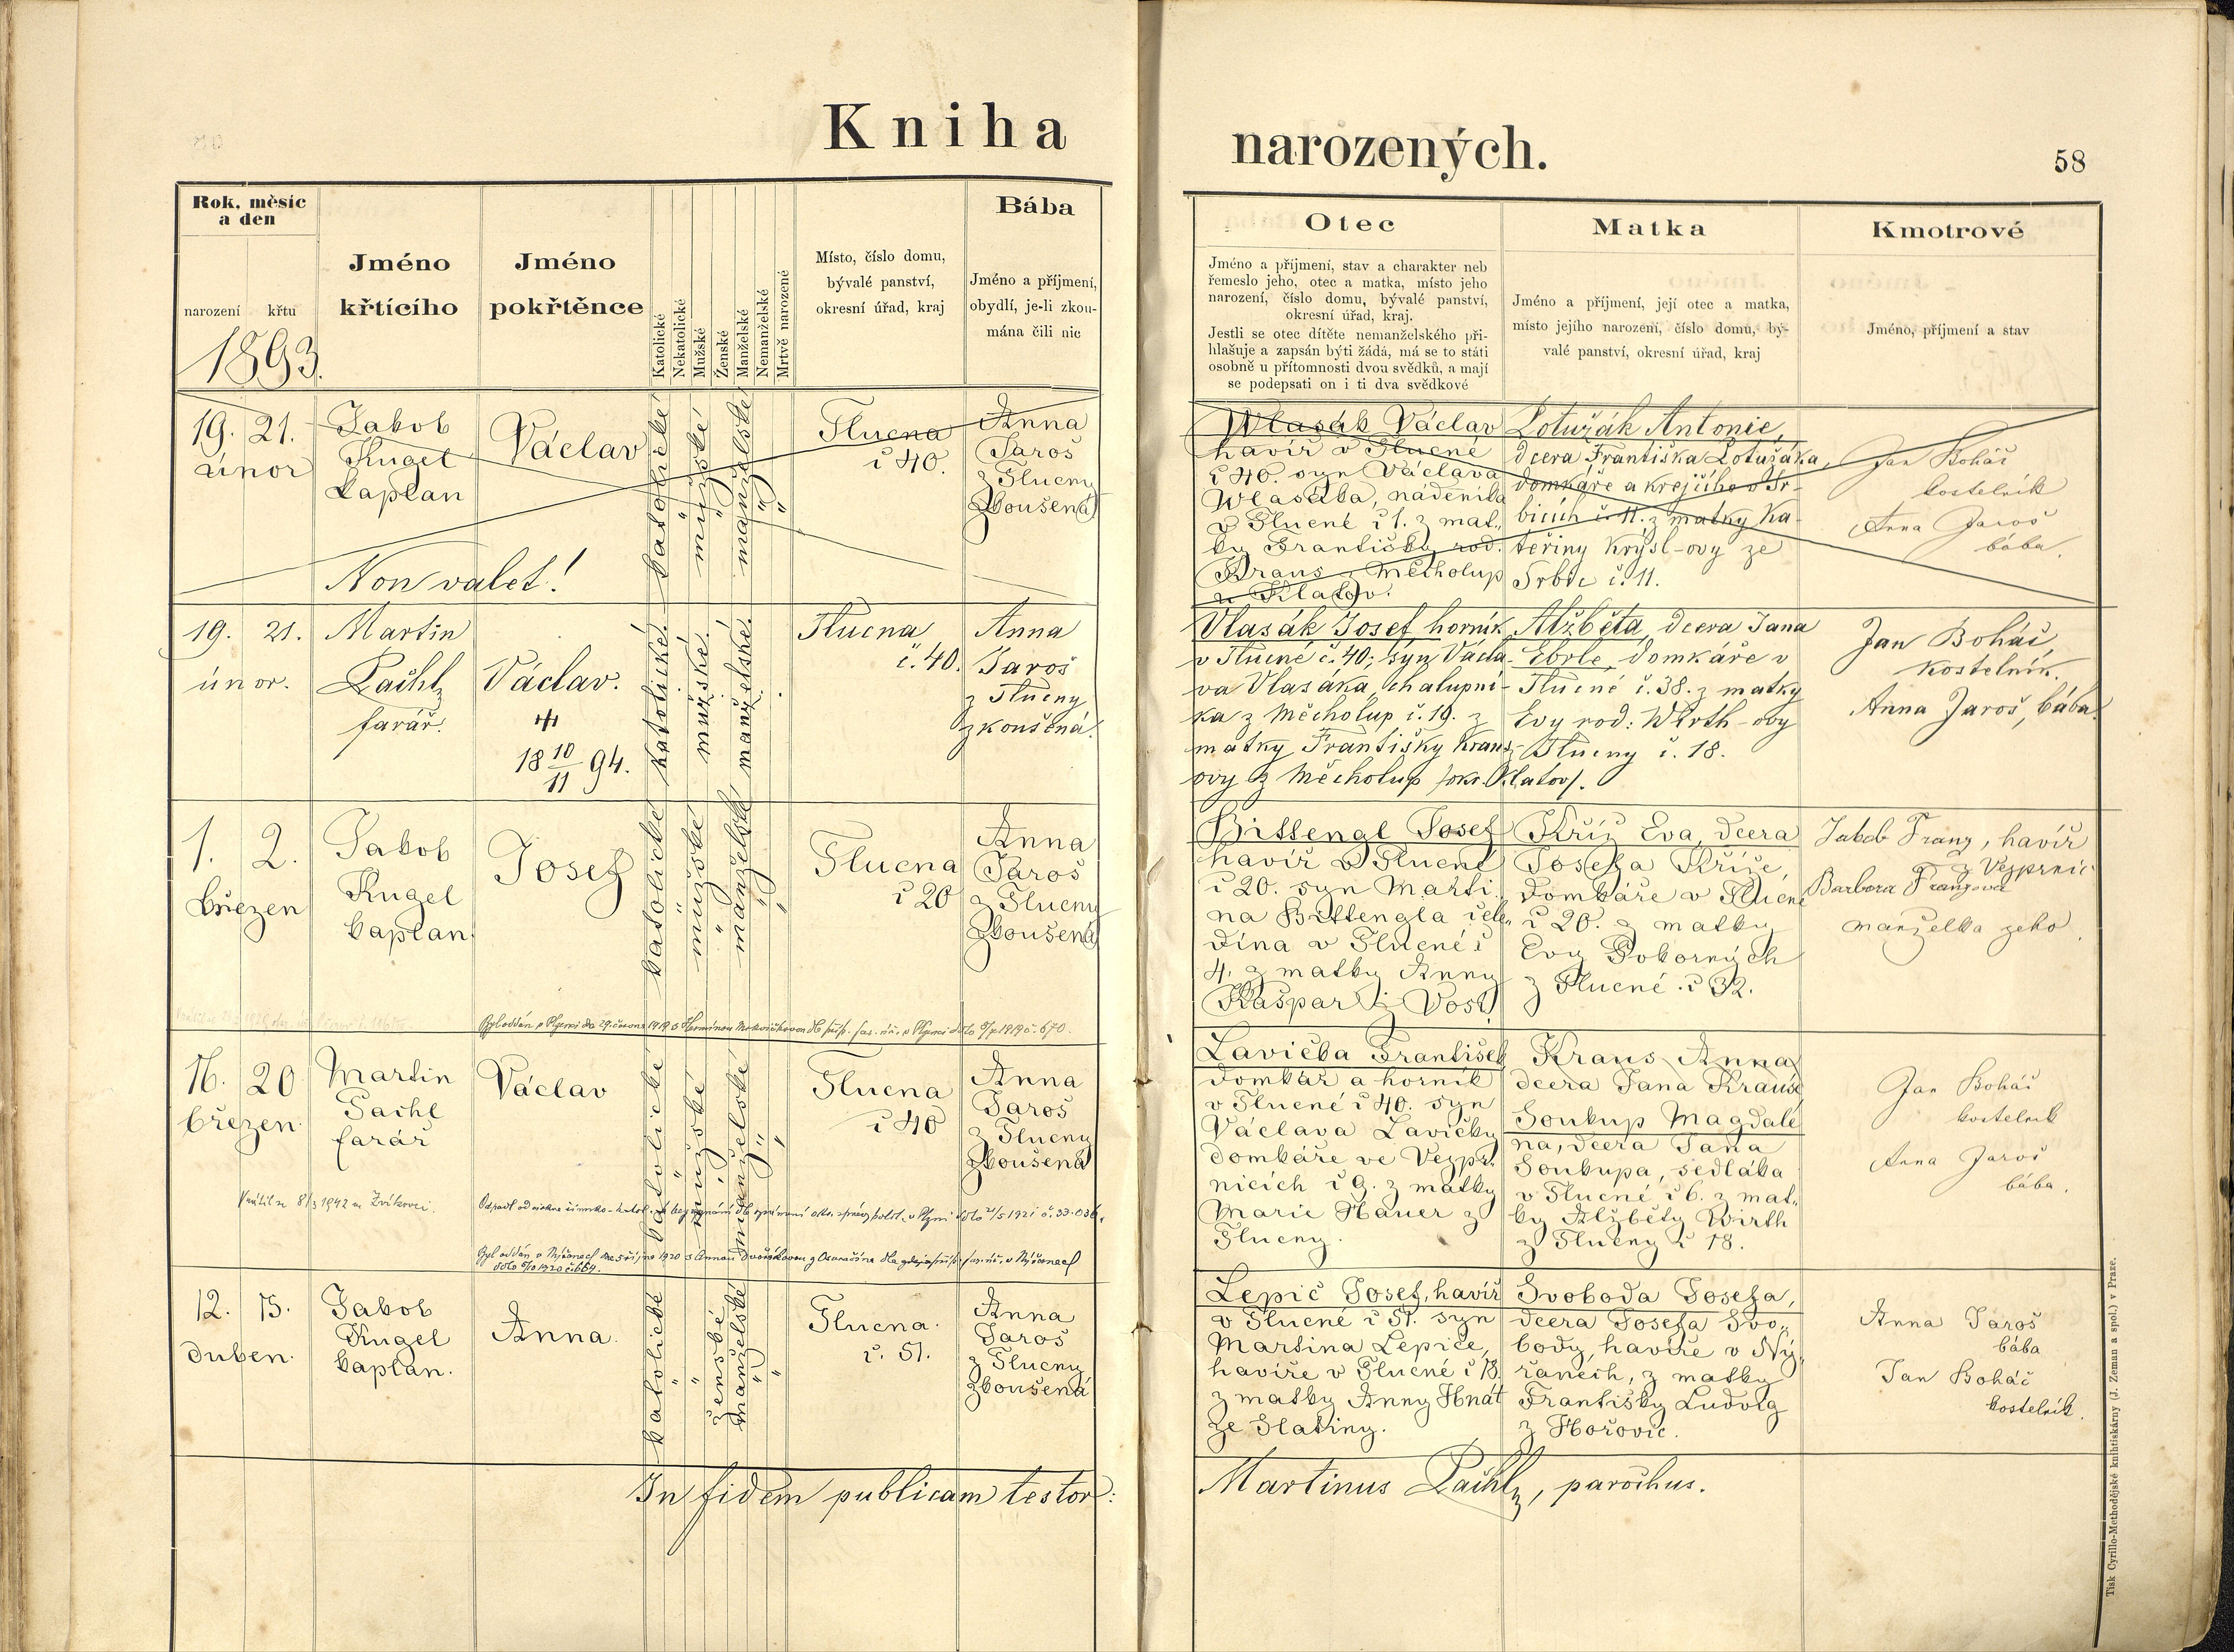 Kniha
narozených.
58
Rok, měsíc
a den
narození křtu
1893.
Jméno
křtícího
Jméno
pokřtěnce
Katolické
Nekatolické
Mužské
Ženské
Manželské
Nemanželské
Mrtvě narozené
Místo, číslo domu,
bývalé panství,
okresní úřad, kraj
Bába
Jméno a příjmení,
obydlí, je-li zkou-
mána čili nic
Otec
Jméno a příjmení, stav a charakter neb
řemeslo jeho, otec a matka, místo jeho
narození, číslo domu, bývalé panství,
okresní úřad, kraj.
Jestli se otec dítěte nemanželského při-
hlašuje a zapsán býti žádá, má se to státi
osobně u přítomnosti dvou svědků, a mají
se podepsati on i ti dva svědkové
Matka
Jméno a příjmení, její otec a matka,
místo jejího narození, číslo domu, bý-
valé panství, okresní úřad, kraj
Kmotrové
Jméno, příjmení a stav
19. 21.
únor
Jakob
Kugel
kaplan
Václav
katolické
mužské
manželské
Tlucna
č 40.
Anna
Jaroš
z Tlucny
zkoušená
Non valet!
Wlasák Václav
havíř v Tlucné
č 40. syn Václava
Wlasákba, nádeníka
v Tlucné č 1. z mat„
ky Františky rod.
Kraus z Měcholup
u Klatov.
Lotužák Antonie,
dcera Františka Lotužáka,
domkáře a krejčího v Sr-
bicích č. 11. z matky Ka-
teřiny Krysl-ovy ze
Srbic č. 11.
Jan Boháč
kostelník
Anna Jaroš
bába.
19. 21.
únor.
Martin
Pachl
farář.
Václav.
18 10/11 94.
katolické.
mužské.
manželské.
Tlucna
č. 40.
Anna
Jaroš
z Tlucny
zkoušená.
Vlasák Josef horník
v Tlucné č. 40; syn Václa-
va Vlasáka, chalupní-
ka z Měcholup č. 19. z
matky Františky Kraus-
ovy z Měcholup /okr. Klatov/.
Alžběta, dcera Jana
Ebrle, domkáře v
Tlucné č. 38. z matky
Evy rod: Wirth-ovy
z Tlucny č. 18.
Jan Boháč,
kostelník.
Anna Jaroš, bába.
1. 2.
březen
Jakob
Kugel
kaplan.
Josef
katolické
mužské
manželské
Tlucna
č 20
Anna
Jaroš
z Tlucny
zkoušená
Bittengl Josef
havíř v Tlucné
č 20. syn Marti„
na Bittengla čele„
dína v Tlucné č
4. z matky Anny
Kašpar z Vost
Kříž Eva, dcera
Josefa Kříže,
domkáře v Tlucné
č 20. z matky
Evy Pokorných
z Tlucné č 32.
Jakob Franz, havíř
z Vejprnic
Barbora Franzova
manželka jeho.
16. 20
březen.
Martin
Pachl
farář
Václav
katolické
mužské
manželské
Tlucna
č 40
Anna
Jaroš
z Tlucny
zkoušená
Lavička František
domkář a horník
v Tlucné č 40. syn
Václava Lavičky
domkáře ve Vejpr„
nicích č 9. z matky
Marie Hauer z
Tlucny.
Kraus Anna
dcera Jana Krause
Soukup Magdalé
na, dcera Jana
Soukupa, sedláka
v Tlucné č 6. z mat„
ky Alžběty Wirth
z Tlucny č 18.
Jan Boháč
kostelník
Anna Jaroš
bába.
12. 15.
duben.
Jakob
Kugel
kaplan.
Anna.
katolické
ženské
manželské
Tlucna.
č. 51.
Anna
Jaroš
z Tlucny
zkoušená
Lepič Josef, havíř
v Tlucné č 51. syn
Martina Lepiče,
havíře v Tlucné č 18.
z matky Anny Hnát
ze Slatiny.
Svoboda Josefa,
dcera Josefa Svo„
body, havíře v Ný„
řanech, z matky
Františky Ludvig
z Hořovic.
Anna Jaroš
bába
Jan Boháč
kostelník.
In fidem publicam testor:
Martinus Pachl, parochus.
Tisk Cyrillo-Methodějské knihtiskárny (J. Zeman a spol.) v Praze.